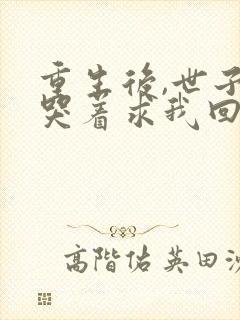 重生後,世子
哭着求我回
高階佑英田沙